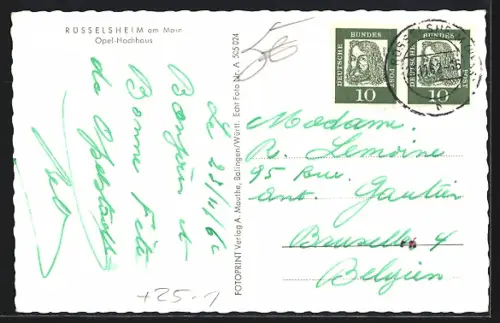 RÜSSELSHEIM am Main
Opel-Hochhaus
Le 23/4/6
Bonjour et
Bonne Fête
de
FOTOPRINT Verlag A. Mauthe, Balingen/Württ. Echt Foto Nr. A 505 024
DEUTSCHE BUNDESPOST
10
DEUTSCHE BUNDESPOST
10
Madame.
R. Lemoine
95 Rue.
Ant. Gautier
Bruxelles 4
Belgien
+25-1